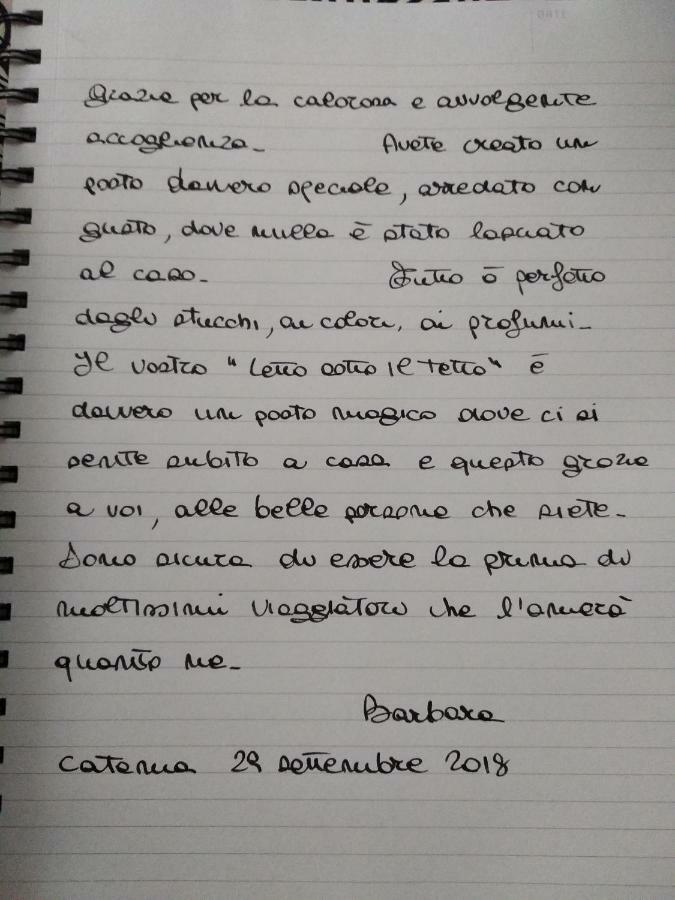 Grazie per la calorosa e avvolgente
accoglienza. Avete creato un
posto davvero speciale, arredato con
gusto, dove nulla è stato lasciato
al caso. Tutto è perfetto
dagli stucchi, ai colori, ai profumi.
Il vostro "Letto sotto il tetto" è
davvero un posto magico dove ci si
sente subito a casa e questo grazie
a voi, alle belle persone che siete.
Sono sicura di essere la prima di
moltissimi viaggiatori che l'amerà
quanto me.
Barbara
Catania 29 settembre 2018